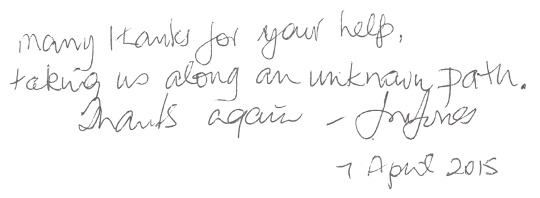 many thanks for your help,
taking us along an unknown path.
Thanks again –
7 April 2015